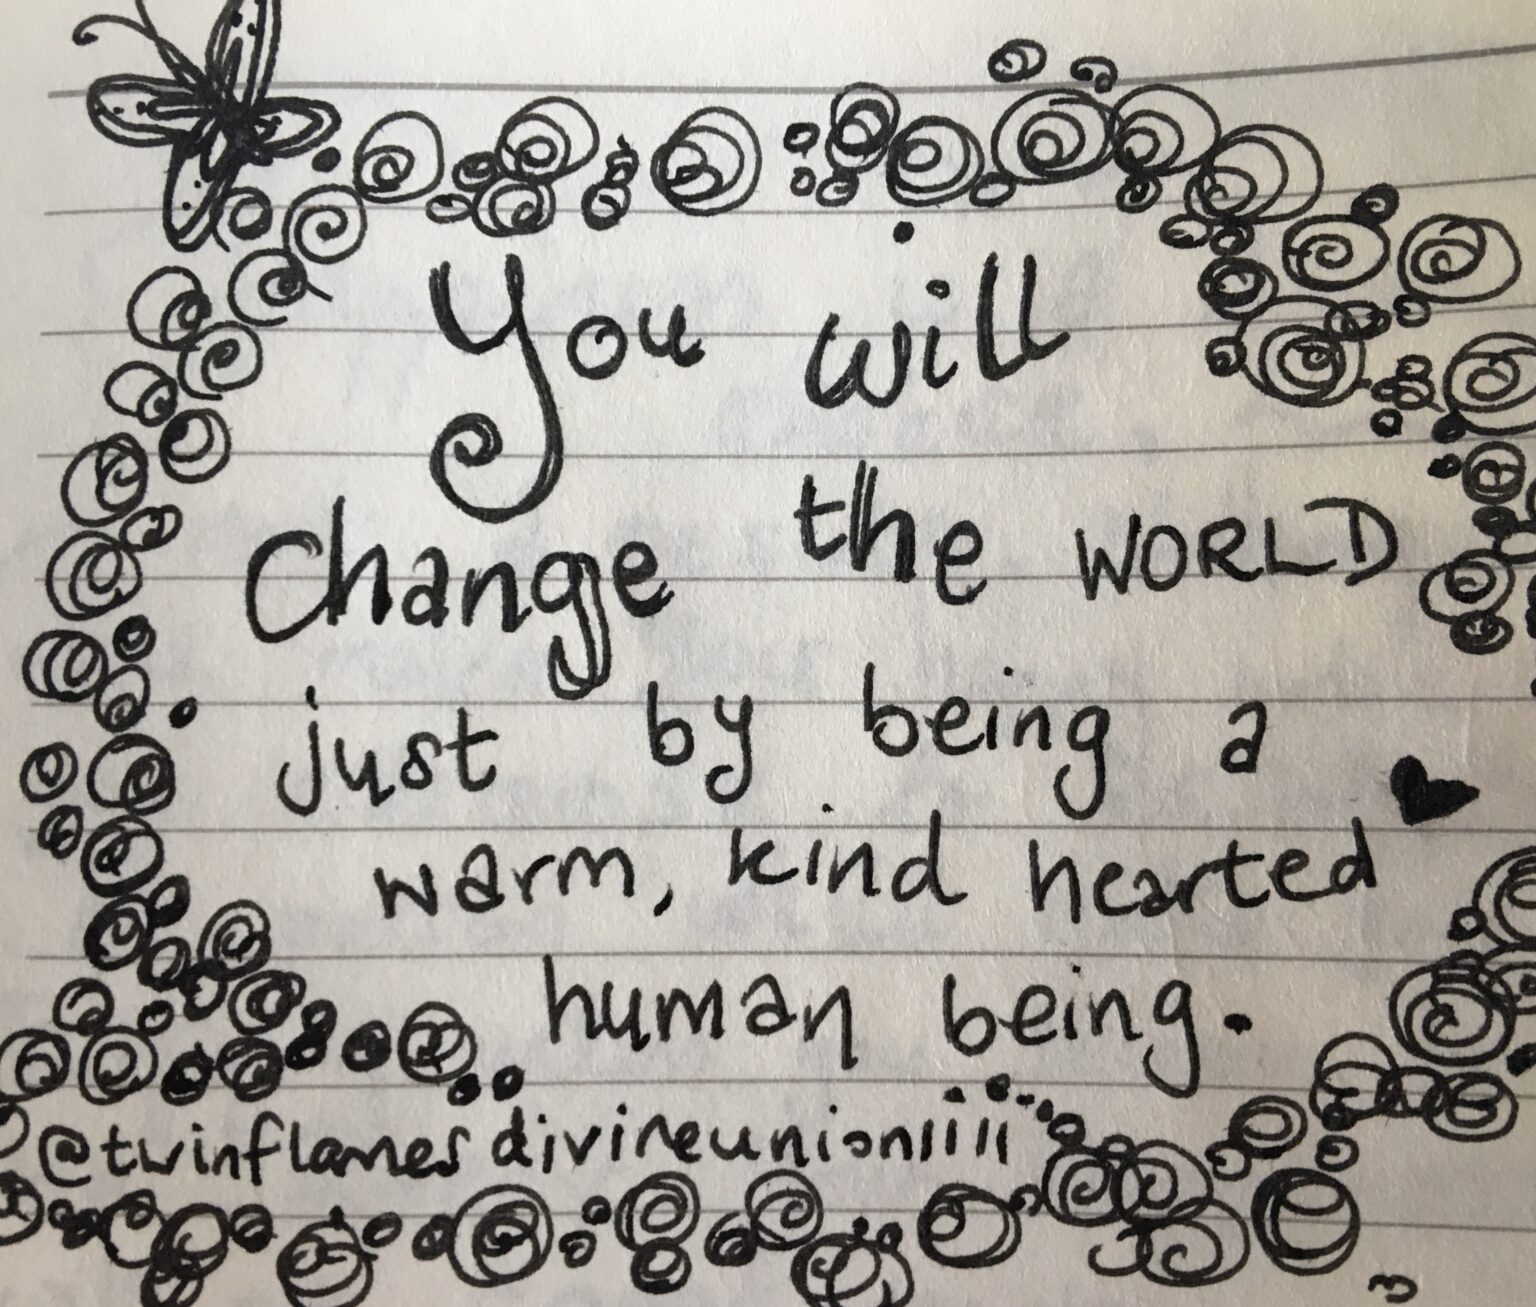 You will
change the WORLD
just by being a
warm, kind hearted
human being.
@twinflamesdivineunion1111